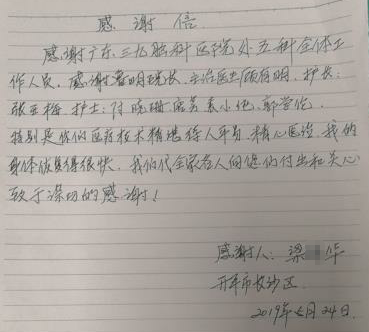 感谢信
感谢广东三九脑科医院外五科全体工
作人员,感谢院长、主治医生顾有明,护长:
张亚梅,护士:付晓珊
特别是你们医疗技术精堪待人平易,精心医治,我的
身体恢复得很快。我们代全家在人向您们付出和关心
致于深切的感谢!
感谢人:梁 华
开平市长沙区
2019年 月24日.